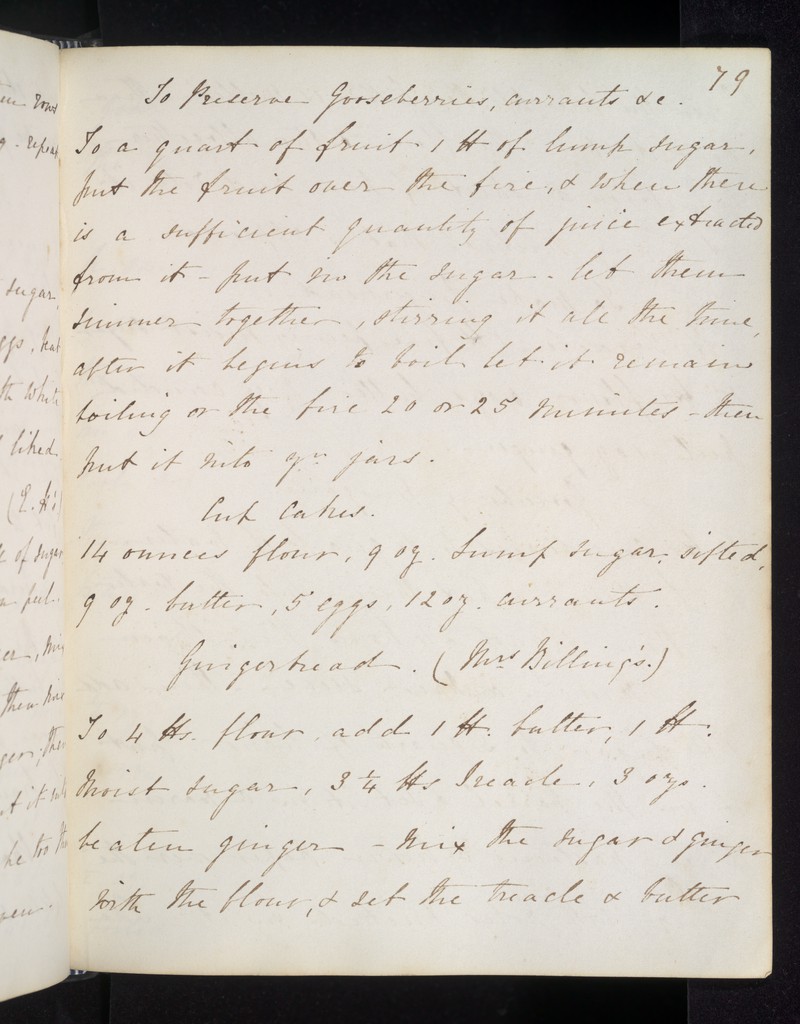 79
To Preserve Gooseberries, currants &c.
To a quart of fruit 1 lb of lump sugar,
put the fruit over the fire, & when there
is a sufficient quantity of juice extracted
from it - put in the sugar - let them
simmer together, stirring it all the time,
after it begins to boil let it remain
boiling or the fire 20 or 25 minutes - then
put it into yr jars.
Cup Cakes.
14 ounces flour, 9 oz. Lump sugar, sifted,
9 oz. butter, 5 eggs, 12 oz. currants.
Gingerbread. (Mrs Billing's.)
To 4 lbs. flour, add 1 lb. butter, 1 lb.
moist sugar, 3 1/4 lbs Treacle, 3 ozs.
beaten ginger - mix the sugar & ginger
with the flour, & set the treacle & butter
sugar,
liked
of sugar